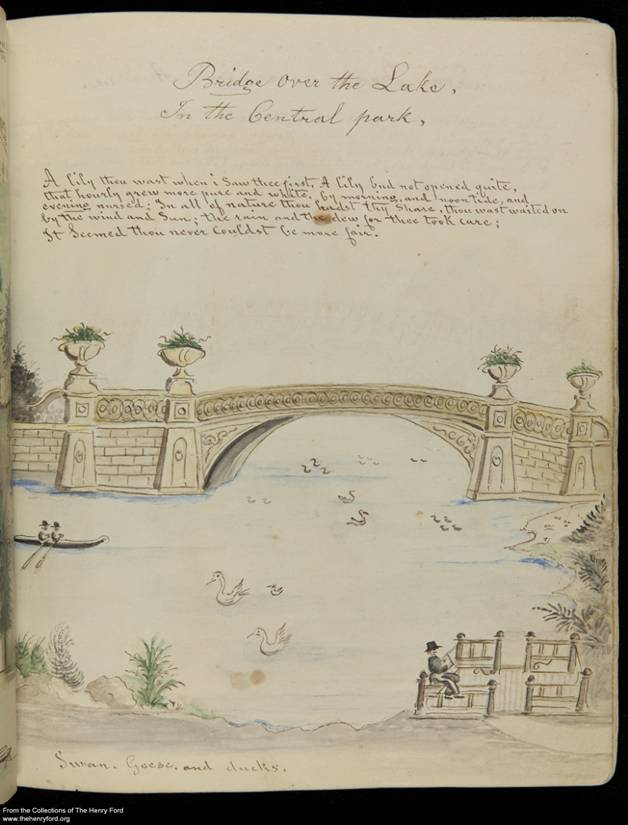 Bridge over the Lake,
In the Central park,
A lily thou wast when i Saw thee first, A lily bud not opened quite,
that hourly grew more pure and white, by morning, and noontide, and
evening nursed: In all of nature thou hadst thy Share, thou wast waited on
by the wind and Sun; the rain and the dew for thee took care;
It Seemed thou never Couldst be more fair.
Swan. Geese. and ducks.
From the Collections of The Henry Ford
www.thehenryford.org